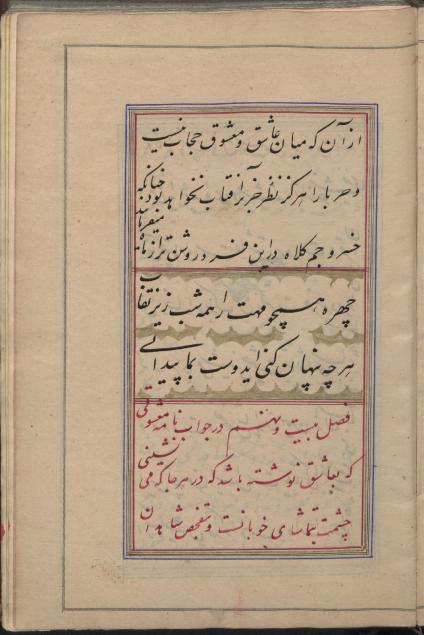 از آن که میان عاشق و معشوق حجاب نیست
و حربا را هرگز نظر جز بر آفتاب نخواهد بود چنانکه
خسرو جم کلاه در این فرد روشن تر از ماه میفرماید
چهره همچو مهت ار همه شب زیر نقاب
هر چه پنهان کنی ایدوست بما پیدائی
فصل بیست و نهم در جواب نامه معشوقی
که بعاشق نوشته باشد که در هر جا که می نشینی
چشمت بتماشای خوبانست و تفحص شاهدان